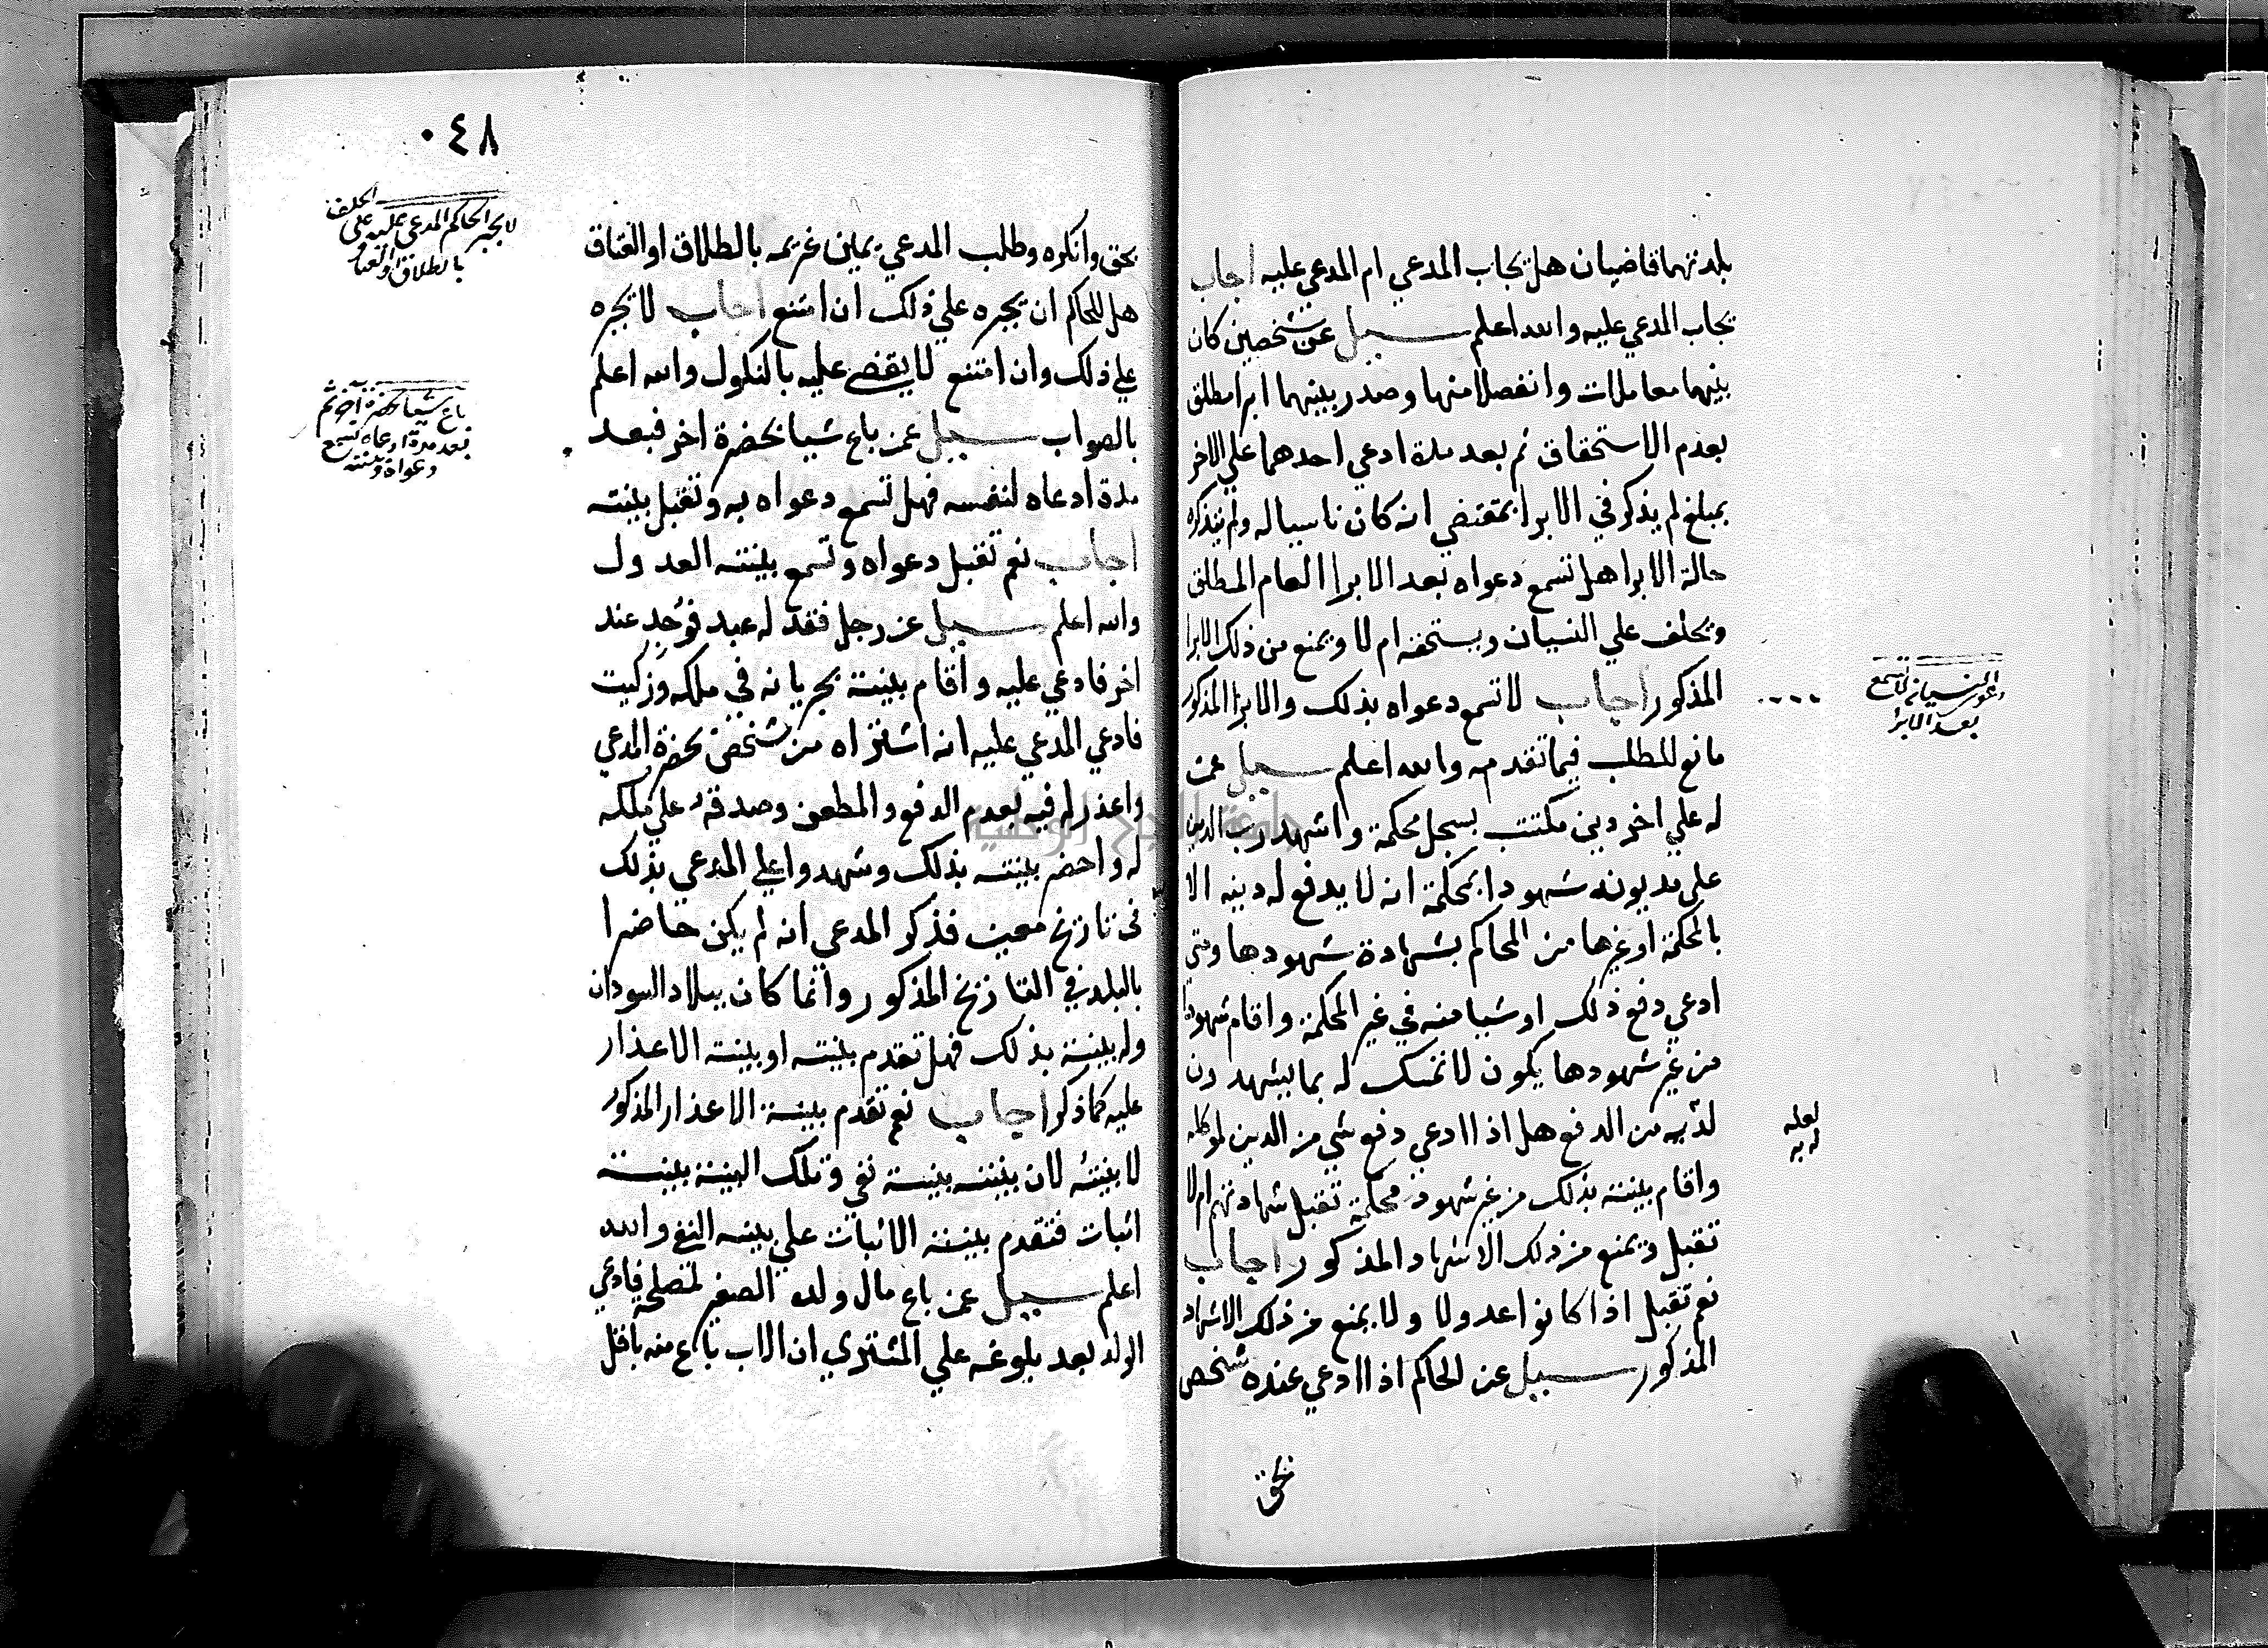 بلدتهما قاضيان هل يجاب المدعي ام المدعي عليه اجاب
يجاب المدعي عليه والله اعلم سيل عن شخصين كان
بينهما معاملات وانفصلا منها وصدر بينهما ابرا مطلق
بعدم الاستحقاق ثم بعد مدة ادعي احدهما علي الاخر
بمبلغ لم يذكر في الابرا بمقتضي انه كان ناسيا له ولم يتذكره
حالة الابرا هل تسمع دعواه بعد الابرا العام المطلق
ويحلف علي النسيان ويستحقه ام لا ويمنع من ذلك الابرا
المذكور اجاب لا تسمع دعواه بذلك والابرا المذكور
مانع للطلب فيما تقدمه والله اعلم سيل عمن
له علي اخر دين مكتتب بسجل محكمة واشهد رب الدين
علي مديونه شهودا بمحكمة انه لا يدفع له دينه الا
بالمحكمة او غيرها من المحاكم بشهادة شهودها ومتي
ادعي دفع ذلك او شيا منه في غير المحكمة واقام شهودا
من غير شهودها يكون لا تمسك له بما يشهدون
لديه من الدفع هل اذا ادعي دفع شي من الدين لموكله
واقام بينة بذلك من غير شهود محكمة تقبل شهادتهم ام لا
تقبل ويمنع من ذلك الاشهاد المذكور اجاب
نعم تقبل اذا كانوا عدولا ولا يمنع من ذلك الاشهاد
المذكور سيل عن الحاكم اذا ادعي عنده شخص
بحق
دعوي النسيان لا تسمع
بعد الابرا
لعله
له به
٠٤٨
بحق وانكره وطلب المدعي يمين غريمه بالطلاق او العتاق
هل للحاكم ان يجبره علي ذلك ان امتنع اجاب لا يجبره
علي ذلك وان امتنع لا يقضي عليه بالنكول والله اعلم
بالصواب سيل عمن باع شيا بحضرة اخر فبعد
مدة ادعاه لنفسه فهل تسمع دعواه به وتقبل بينته
اجاب نعم تقبل دعواه وتسمع بينته العدول
والله اعلم سيل عن رجل فقد له عبد فوجد عند
اخر فادعي عليه واقام بينة بجريانه في ملكه وزكيت
فادعي المدعي عليه انه اشتراه من شخص بحضرة المدعي
واعذر له فيه بعدم الدفع والمطعن وصدقه علي ملكه
له واحضر بينته بذلك وشهدوا علي المدعي بذلك
في تاريخ معين فذكر المدعي انه لم يكن حاضرا
بالبلد في التاريخ المذكور وانما كان ببلاد السودان
وله بينة بذلك فهل تقدم بينته او بينة الاعذار
عليه كما ذكر اجاب نعم تقدم بينة الاعذار المذكور
لا بينته لان بينته بينة نفي وتلك البينة بينة
اثبات فتقدم بينة الاثبات علي بينه النفي والله
اعلم سيل عمن باع مال ولده الصغير لمصلحة فادعي
الولد بعد بلوغه علي المشتري ان الاب باع منه باقل
لا يجبر الحاكم المدعي عليه علي الحلف
بالطلاق والعتاق
باع شيا بحضرة اخر ثم
بعد مدة ادعاه تسمع
دعواه وبينته
جامعة النجاح الوطنية